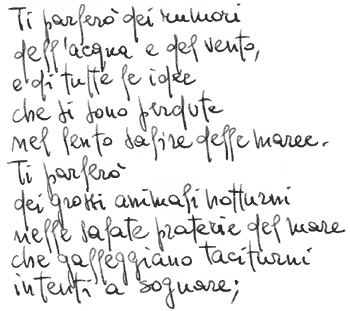 Ti parlerò dei rumori
dell'acqua e del vento,
e di tutte le idee
che si sono perdute
nel lento salire delle maree.
Ti parlerò
dei grossi animali notturni
nelle salate praterie del mare
che galleggiano taciturni
intenti a sognare;